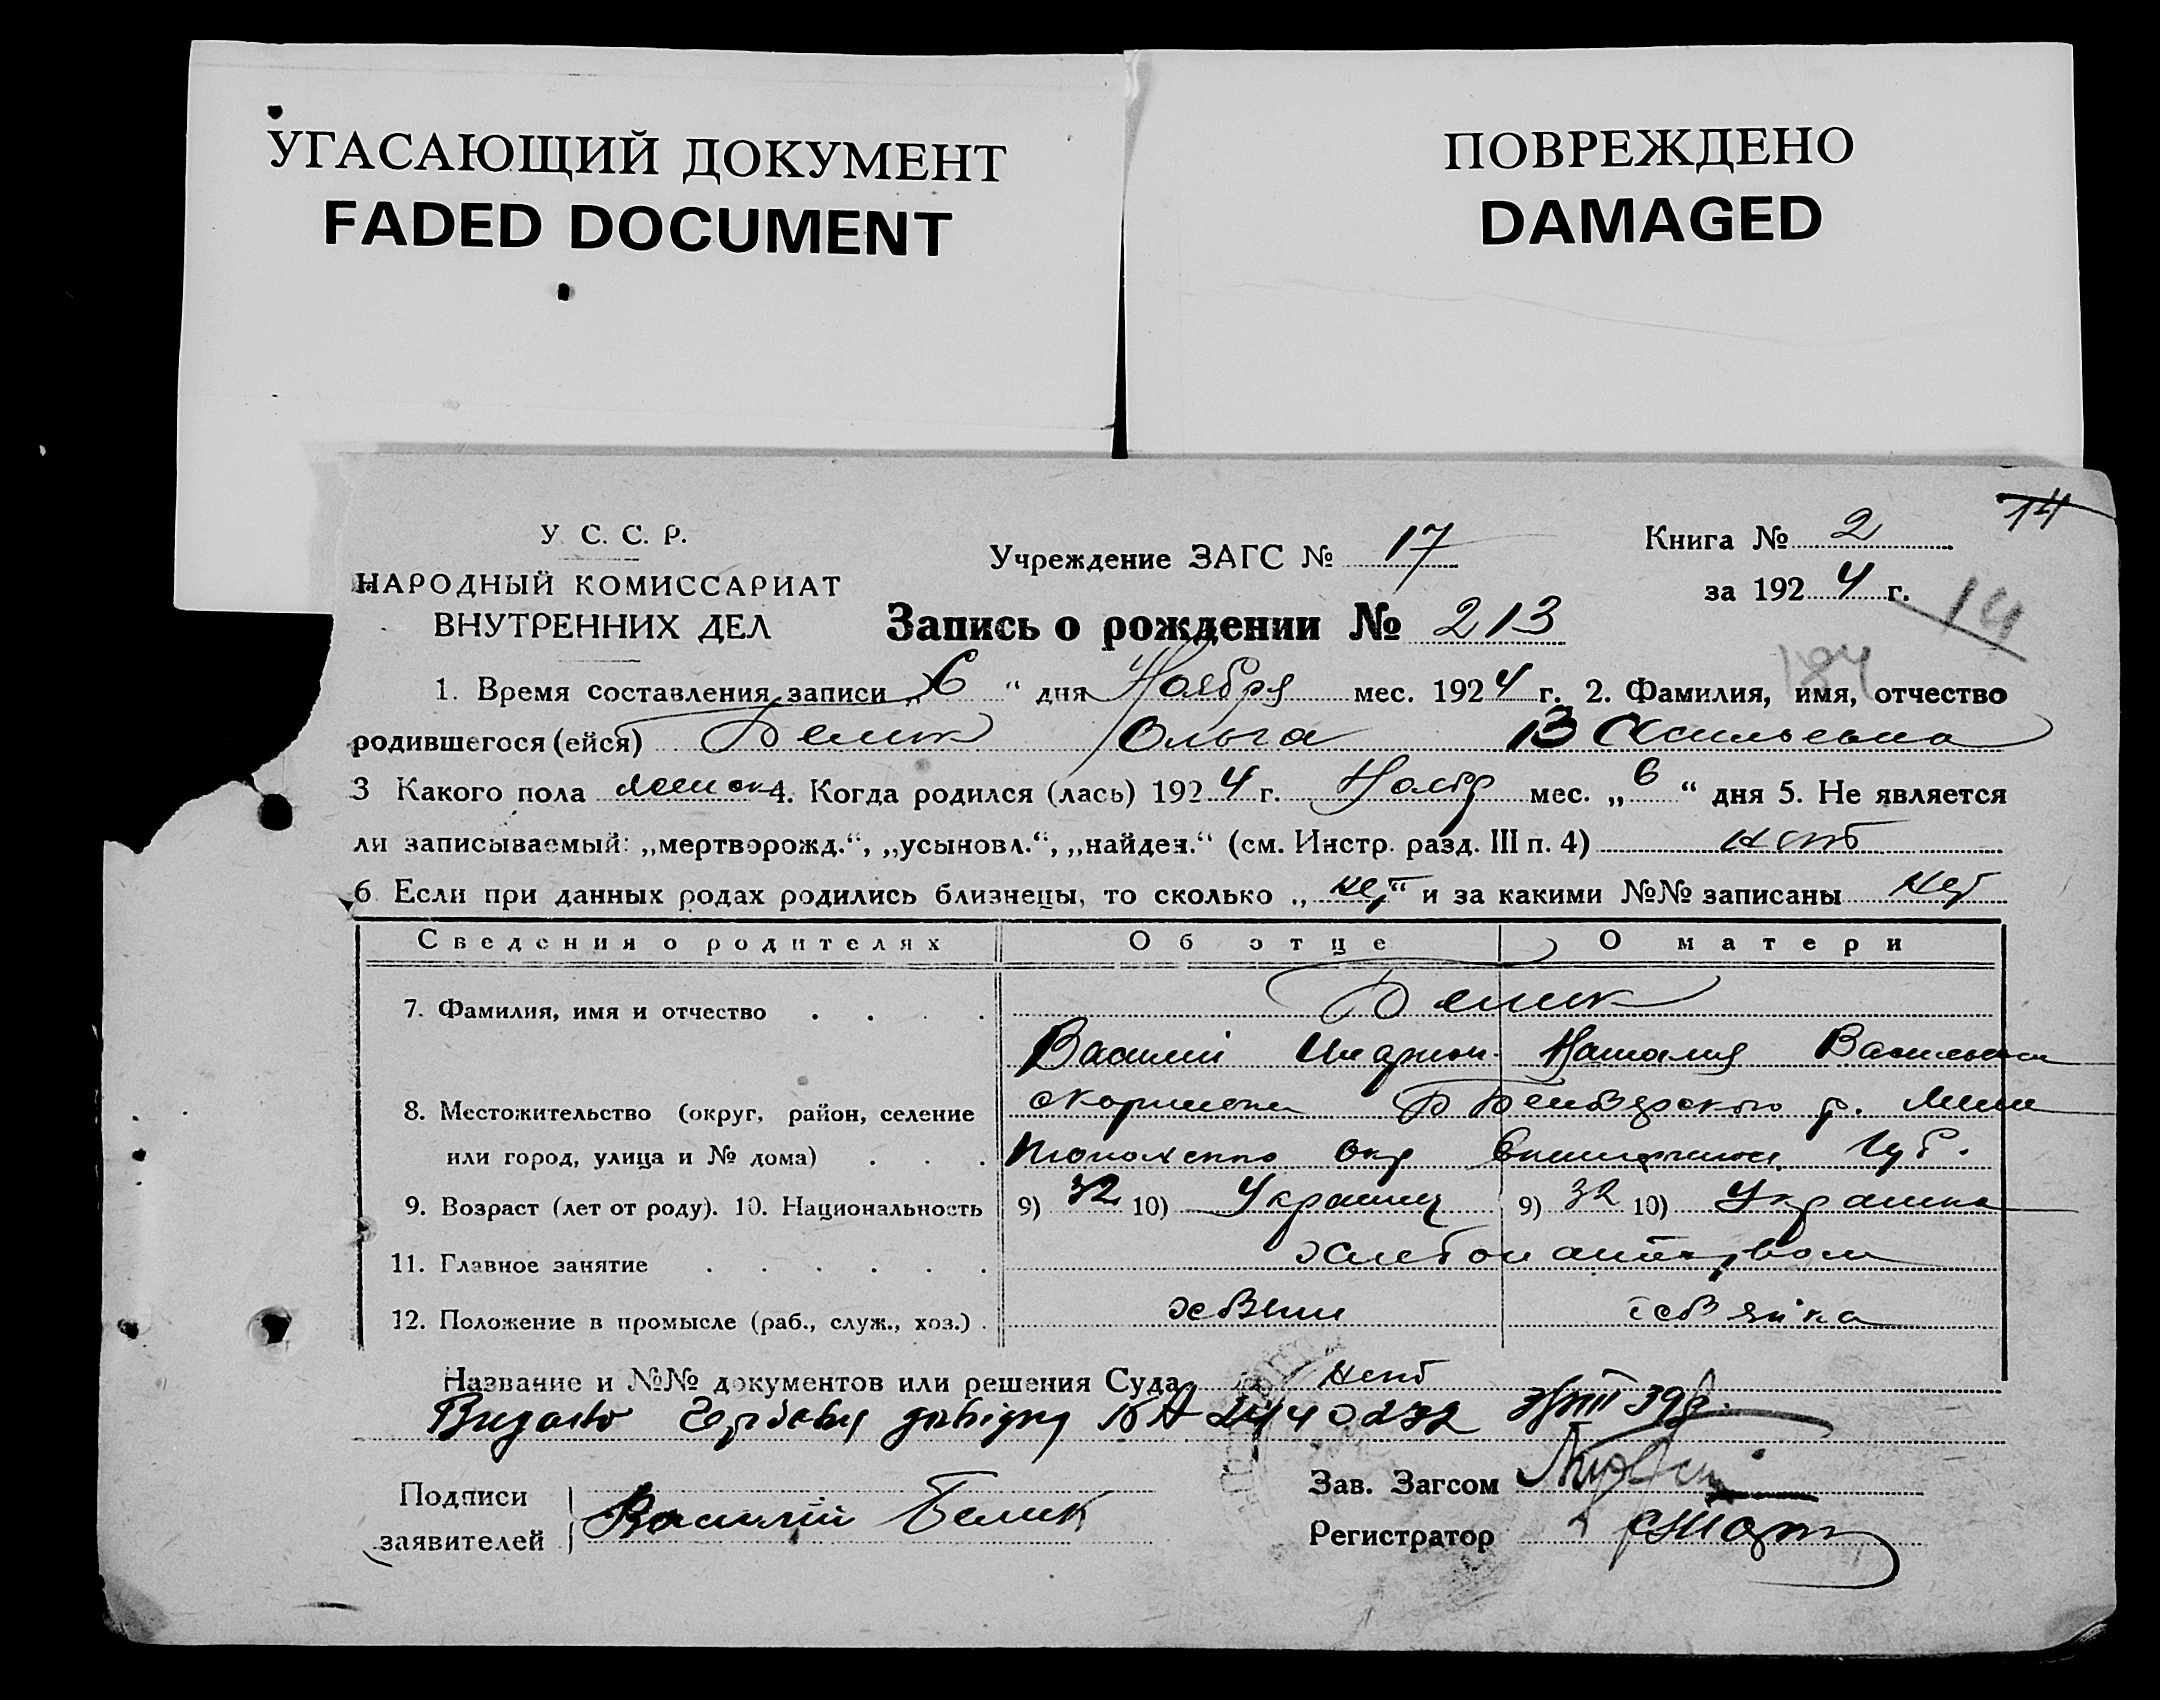 УГАСАЮЩИЙ ДОКУМЕНТ
FADED DOCUMENT
ПОВРЕЖДЕНО
DAMAGED
14
У. С. С. Р.
НАРОДНЫЙ КОМИССАРИАТ
ВНУТРЕННИХ ДЕЛ
Учреждение ЗАГС № 17
Книга № 2
за 1924 г.
14
Запись о рождении № 213
184
1. Время составления записи „6“ дня Ноября мес. 1924 г. 2. Фамилия, имя, отчество
родившегося (ейся) Белик Ольга Васильевна
3 Какого пола женск 4. Когда родился (лась) 1924 г. Ноябр мес. „6“ дня 5. Не является
ли записываемый: „мертворожд.“, „усыновл.“, „найден.“ (см. Инстр. разд. III п. 4) нет
6. Если при данных родах родились близнецы, то сколько „нет“ и за какими №№ записаны нет
Сведения о родителях Об отце О матери
7. Фамилия, имя и отчество . . . . Белик
Василий Иларион. Наталия Васильевн
8. Местожительство (округ, район, селение
или город, улица и № дома) . . . окр Губ.
9. Возраст (лет от роду). 10. Национальность 9) 32 10) Украинц 9) 32 10) Украинка
11. Главное занятие . . . . .
12. Положение в промысле (раб., служ., хоз.) .
Название и №№ документов или решения Суда нет
Видано 39р.
Подписи
заявителей
Василий Белик
Зав. Загсом
Регистратор